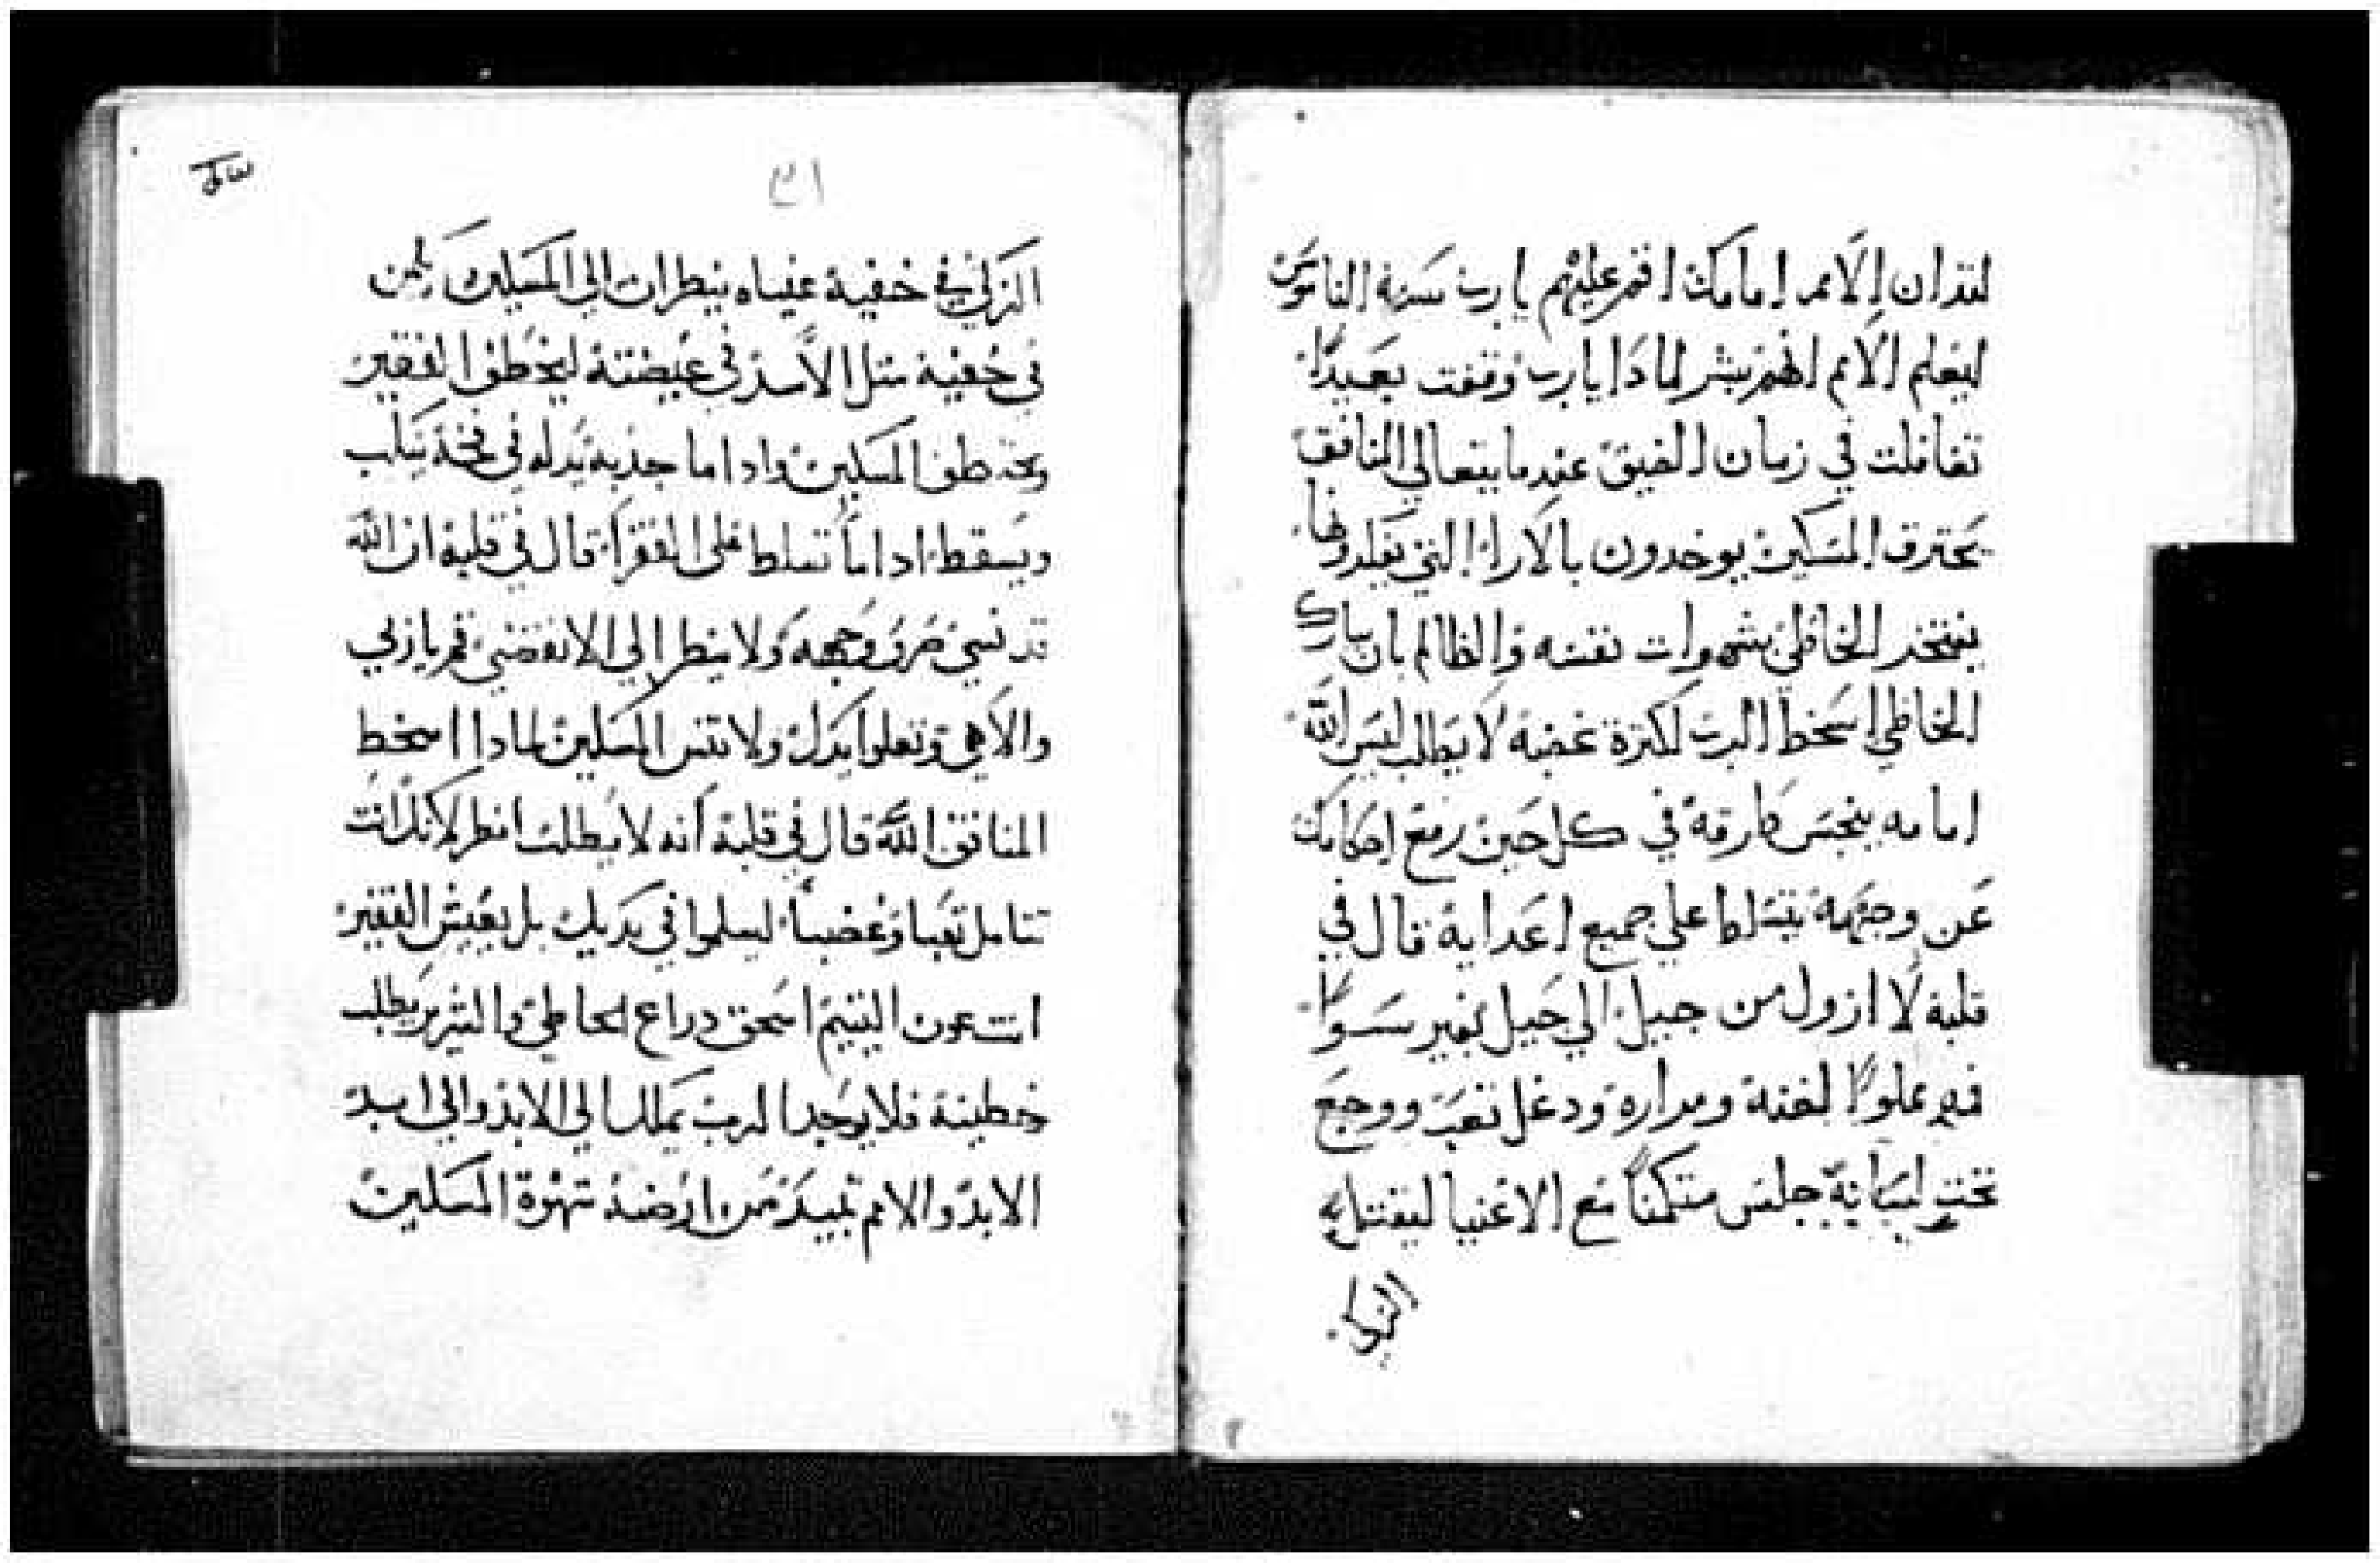 لتدان الامم امامك اقم عليهم يارب سنة الناموس
ليعلم الامم انهم بشر لماذا يارب وقفت بعيدًا
تغافلت في زمان الضيق عندما يتعالي المنافق
يحترق المسكين يوخدون بالارا التي يفكرونها
يفتخر الخاطي بشهوات نفسه والظالم بان يبارك
الخاطي اسخط الرب لكثرة غضبه لا يطلب ليس الله
امامه ينجس طرقه في كل حين رفع احكامك
عن وجهه يتسلط علي جميع اعدايه قال في
قلبه لا ازول من جيل الي جيل بغير سوًا
فمه مملوًا لعنه ومراره ودغل تعب ووجع
تحت لسانه جلس متكمنًا مع الاغنيا ليقتل
الزكي
٣١
الزكي في خفية عيناه ينظران الي المسكين يكمن
في خفية متل الاسد في غيضته ليخطف الفقير
يخطف المسكين وادا ما جذبه يدله في فخه ينكب
ويسقط ادا ما تسلط علي الفقرا قال في قلبه ان الله
قد نسي صرف وجهه ولا ينظر الي الانقضي قم ياربي
والاهي وتعلوا يدك ولا تنس المسكين لمادا اسخط
المنافق الله قال في قلبه انه لا يطلب انظر لانك انت
تتامل تعبا وغضباً ليسلموا في يديك بل يعيش الفقير
انت عون اليتيم اسحق دراع الخاطي والشرير يطلب
خطيته فلا يوجد الرب يملك الي الابد والي ابد
الابد والامم تبيد من ارضه شهوة المسكين